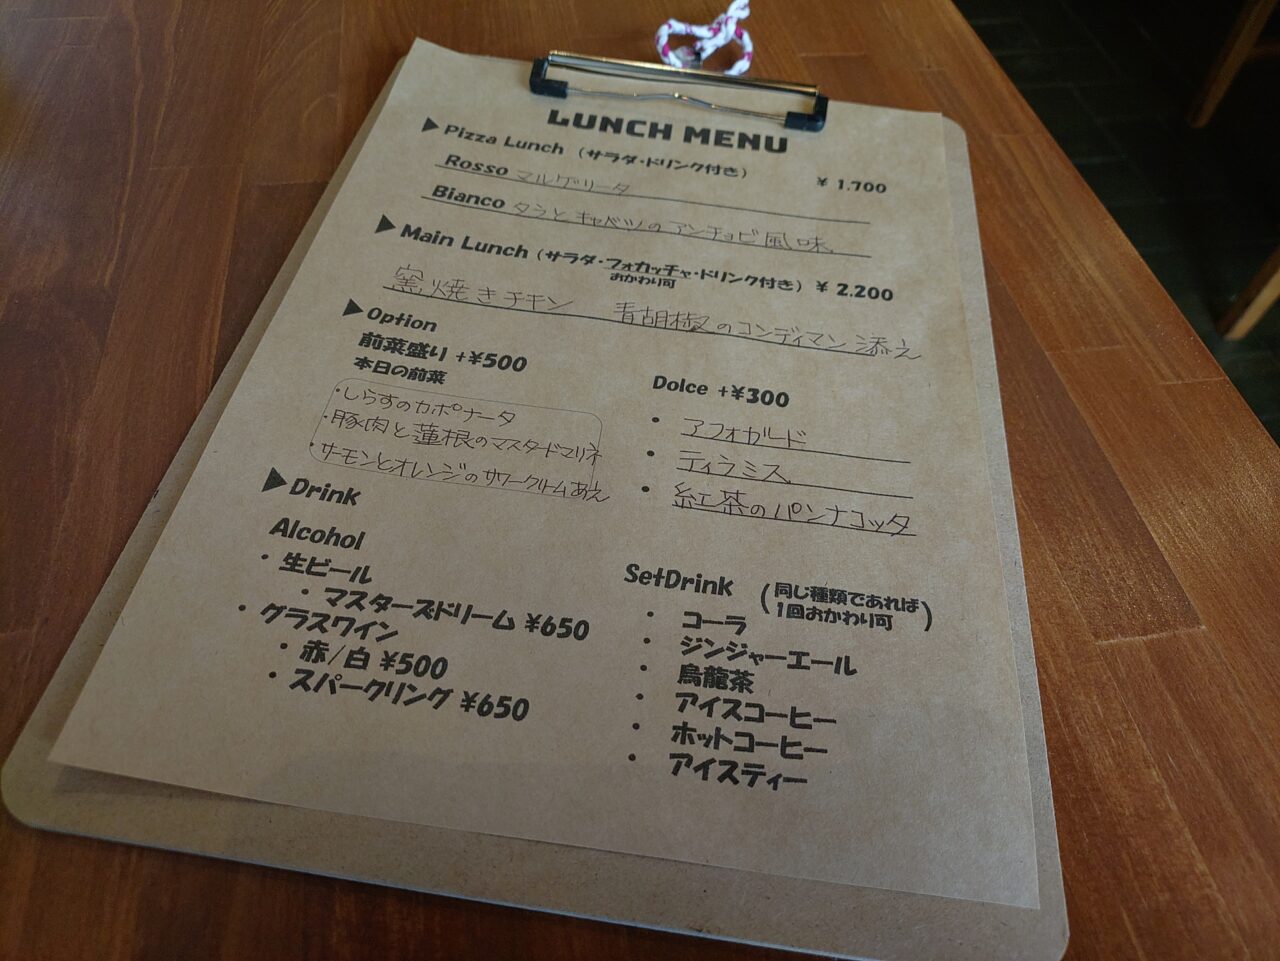 LUNCH MENU
▶ Pizza Lunch （サラダ・ドリンク付き） ¥ 1.700
Rosso マルゲリータ
Bianco タラとキャベツのアンチョビ風味
▶ Main Lunch（サラダ・フォカッチャ・ドリンク付き） ¥ 2.200
おかわり可
窯焼きチキン 青胡椒のコンディマン添え
▶ Option
前菜盛り +¥500
本日の前菜
・しらすのカポナータ
・豚肉と蓮根のマスタードマリネ
・サーモンとオレンジのサワークリームあえ
Dolce +¥300
• アフォガード
• ティラミス
• 紅茶のパンナコッタ
▶ Drink
Alcohol
• 生ビール
• マスターズドリーム ¥650
• グラスワイン
• 赤/白 ¥500
• スパークリング ¥650
SetDrink （同じ種類であれば
1回おかわり可）
• コーラ
• ジンジャーエール
• 烏龍茶
• アイスコーヒー
• ホットコーヒー
• アイスティー